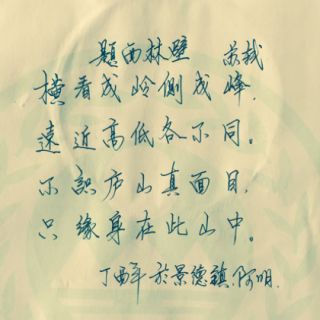 題西林壁 苏軾
横看成岭側成峰,
遠近高低各不同。
不識庐山真面目,
只缘身在此山中。
丁酉年於景德鎮,阿明.